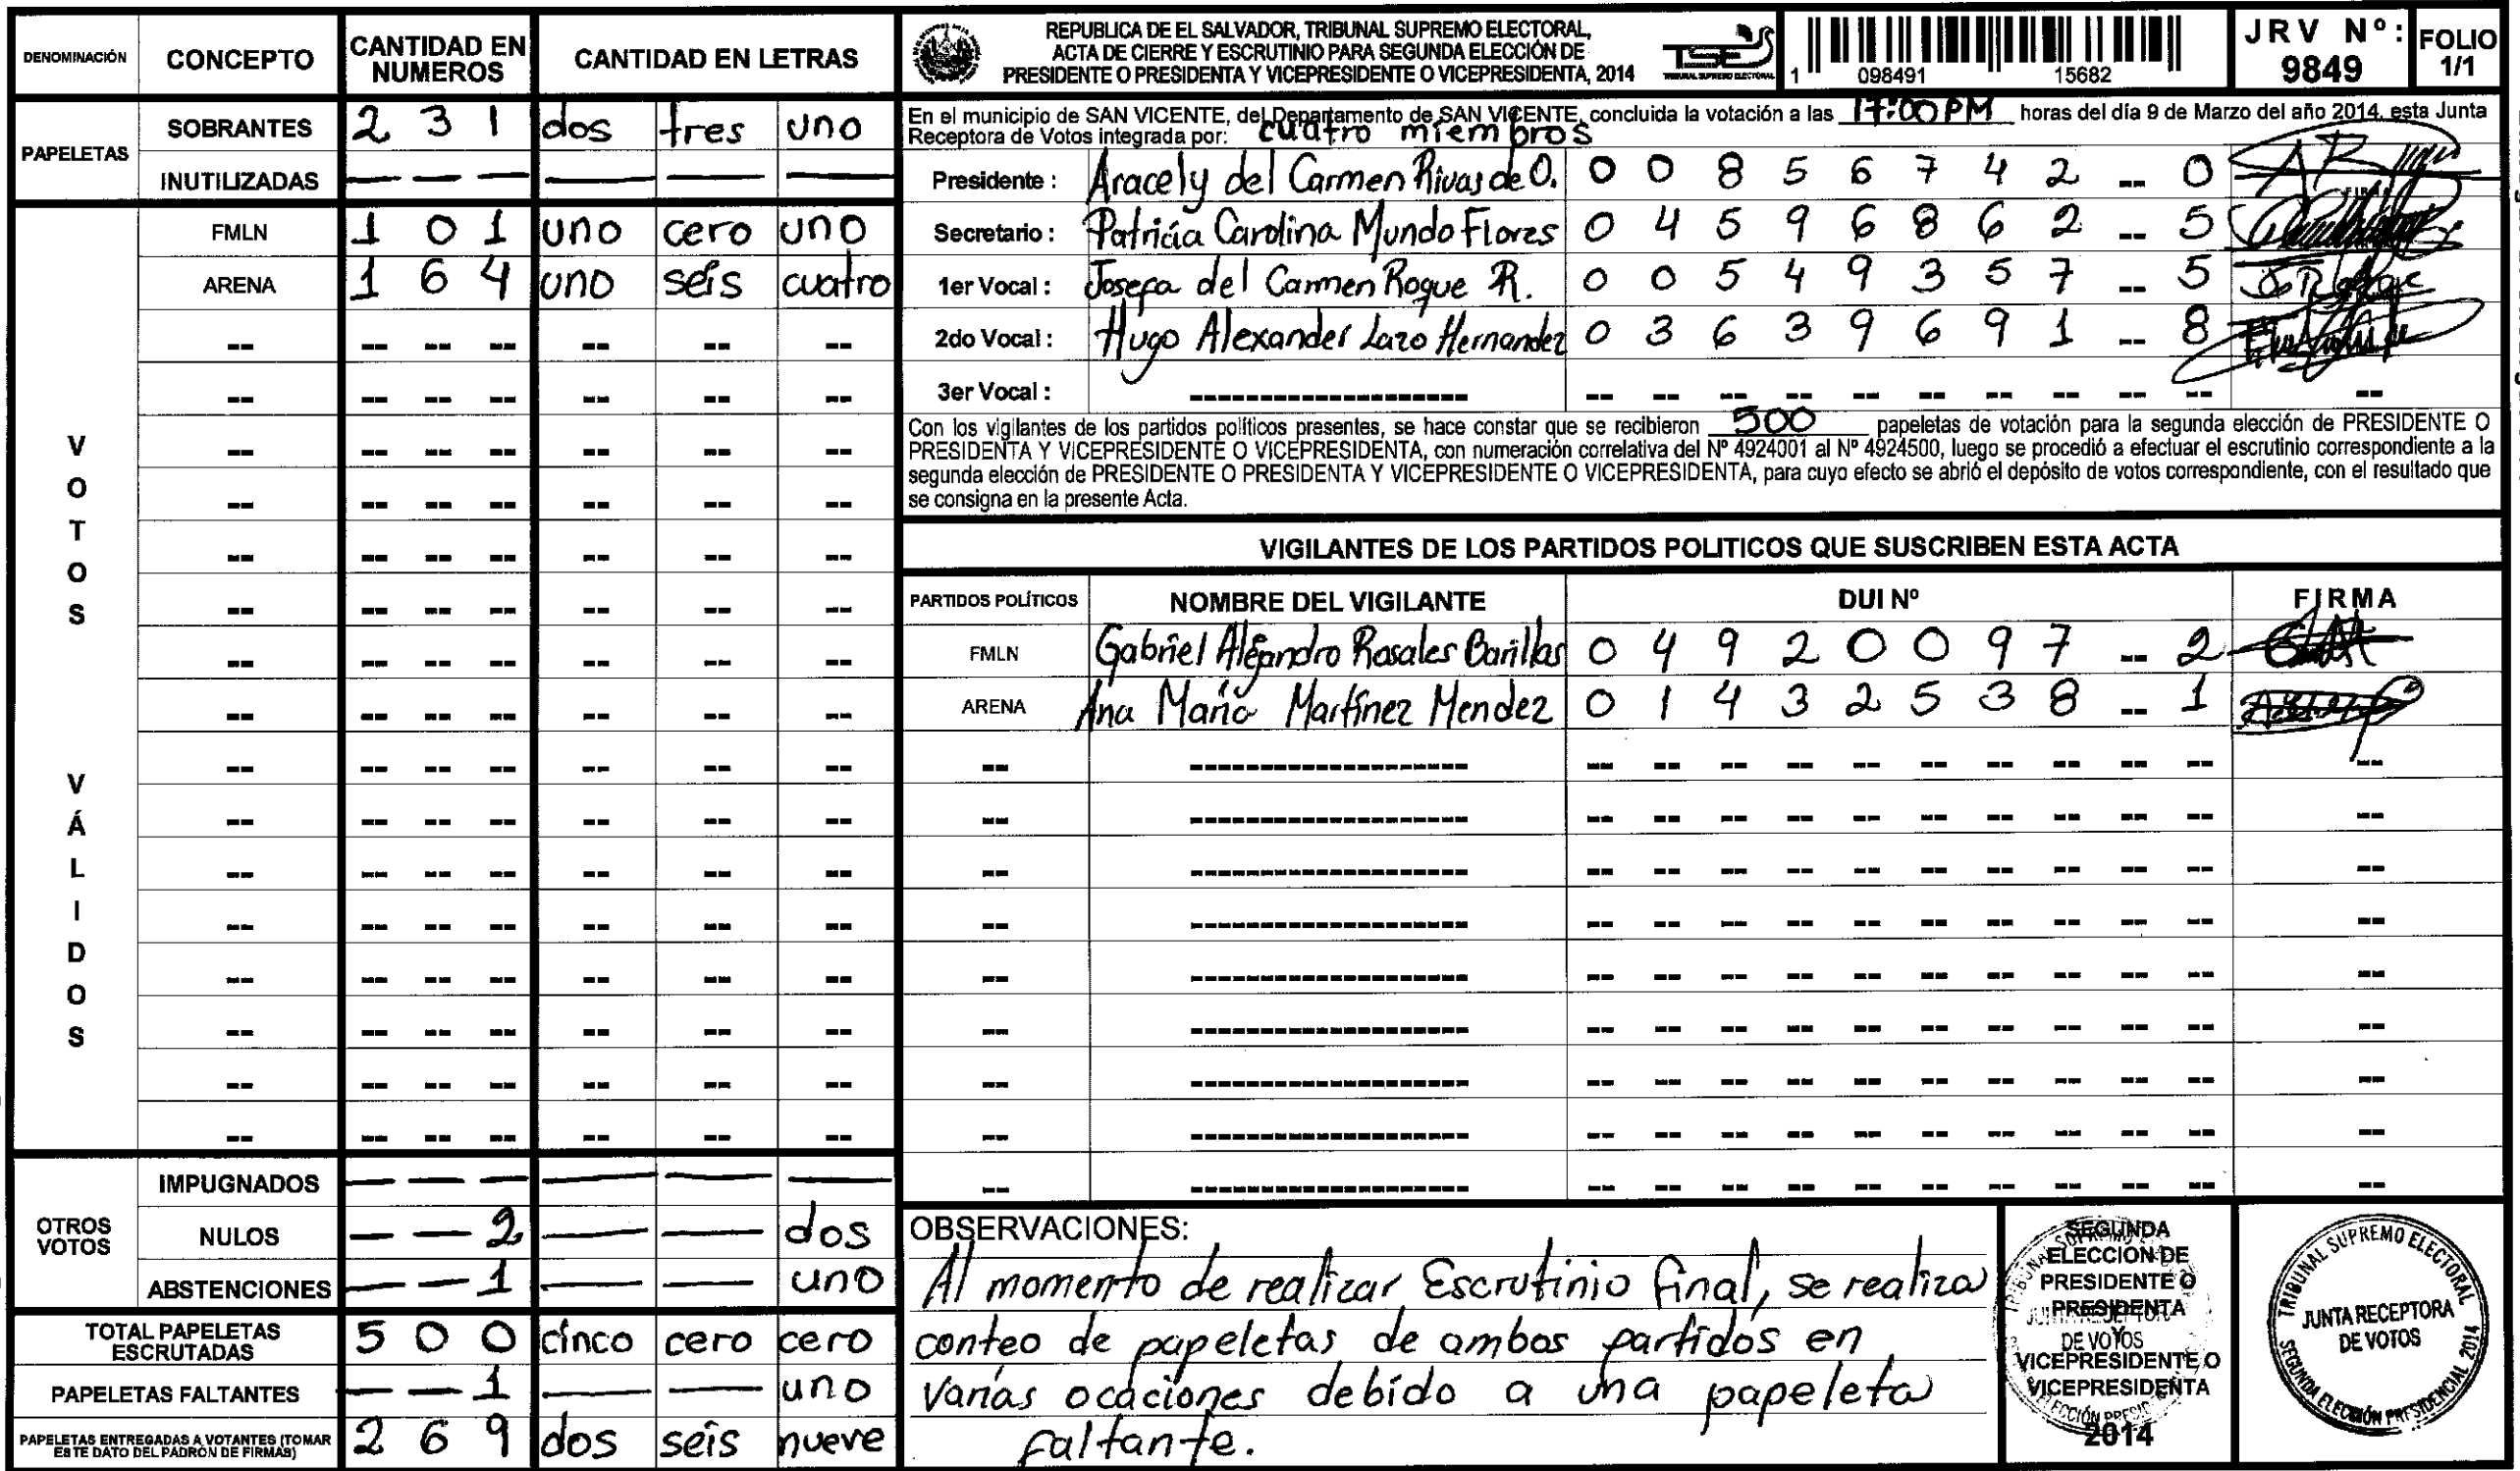 DENOMINACIÓN CONCEPTO CANTIDAD EN NUMEROS CANTIDAD EN LETRAS
PAPELETAS
SOBRANTES 2 3 1 dos tres uno
INUTILIZADAS — — — — — —
VOTOS VÁLIDOS
FMLN 1 0 1 uno cero uno
ARENA 1 6 4 uno seis cuatro
OTROS VOTOS
IMPUGNADOS — — — — — —
NULOS — — 2 — — dos
ABSTENCIONES — — 1 — — uno
TOTAL PAPELETAS ESCRUTADAS 5 0 0 cinco cero cero
PAPELETAS FALTANTES — — 1 — — uno
PAPELETAS ENTREGADAS A VOTANTES (TOMAR ESTE DATO DEL PADRÓN DE FIRMAS) 2 6 9 dos seis nueve
REPUBLICA DE EL SALVADOR, TRIBUNAL SUPREMO ELECTORAL,
ACTA DE CIERRE Y ESCRUTINIO PARA SEGUNDA ELECCIÓN DE
PRESIDENTE O PRESIDENTA Y VICEPRESIDENTE O VICEPRESIDENTA, 2014
TSE
TRIBUNAL SUPREMO ELECTORAL
1 098491 15682
JRV Nº: 9849
FOLIO 1/1
En el municipio de SAN VICENTE, del Departamento de SAN VICENTE, concluida la votación a las 17:00 PM horas del día 9 de Marzo del año 2014, esta Junta
Receptora de Votos integrada por: cuatro miembros
Presidente : Aracely del Carmen Rivas de O. 0 0 8 5 6 7 4 2 -- 0
Secretario : Patricia Carolina Mundo Flores 0 4 5 9 6 8 6 2 -- 5
1er Vocal : Josefa del Carmen Roque R. 0 0 5 4 9 3 5 7 -- 5
2do Vocal : Hugo Alexander Lazo Hernandez 0 3 6 3 9 6 9 1 -- 8
3er Vocal :
Con los vigilantes de los partidos políticos presentes, se hace constar que se recibieron 500 papeletas de votación para la segunda elección de PRESIDENTE O
PRESIDENTA Y VICEPRESIDENTE O VICEPRESIDENTA, con numeración correlativa del Nº 4924001 al Nº 4924500, luego se procedió a efectuar el escrutinio correspondiente a la
segunda elección de PRESIDENTE O PRESIDENTA Y VICEPRESIDENTE O VICEPRESIDENTA, para cuyo efecto se abrió el depósito de votos correspondiente, con el resultado que
se consigna en la presente Acta.
VIGILANTES DE LOS PARTIDOS POLITICOS QUE SUSCRIBEN ESTA ACTA
PARTIDOS POLÍTICOS NOMBRE DEL VIGILANTE DUI Nº FIRMA
FMLN Gabriel Alejandro Rosales Barillas 0 4 9 2 0 0 9 7 -- 2
ARENA Ana Maria Martínez Mendez 0 1 4 3 2 5 3 8 -- 1
OBSERVACIONES:
Al momento de realizar Escrutinio final, se realiza
conteo de papeletas de ambos partidos en
varias ocaciones debido a una papeleta
faltante.
SEGUNDA
ELECCION DE
PRESIDENTE O
PRESIDENTA
Y
VICEPRESIDENTE O
VICEPRESIDENTA
2014
TRIBUNAL SUPREMO ELECTORAL
JUNTA RECEPTORA
DE VOTOS
SEGUNDA ELECCIÓN PRESIDENCIAL 2014